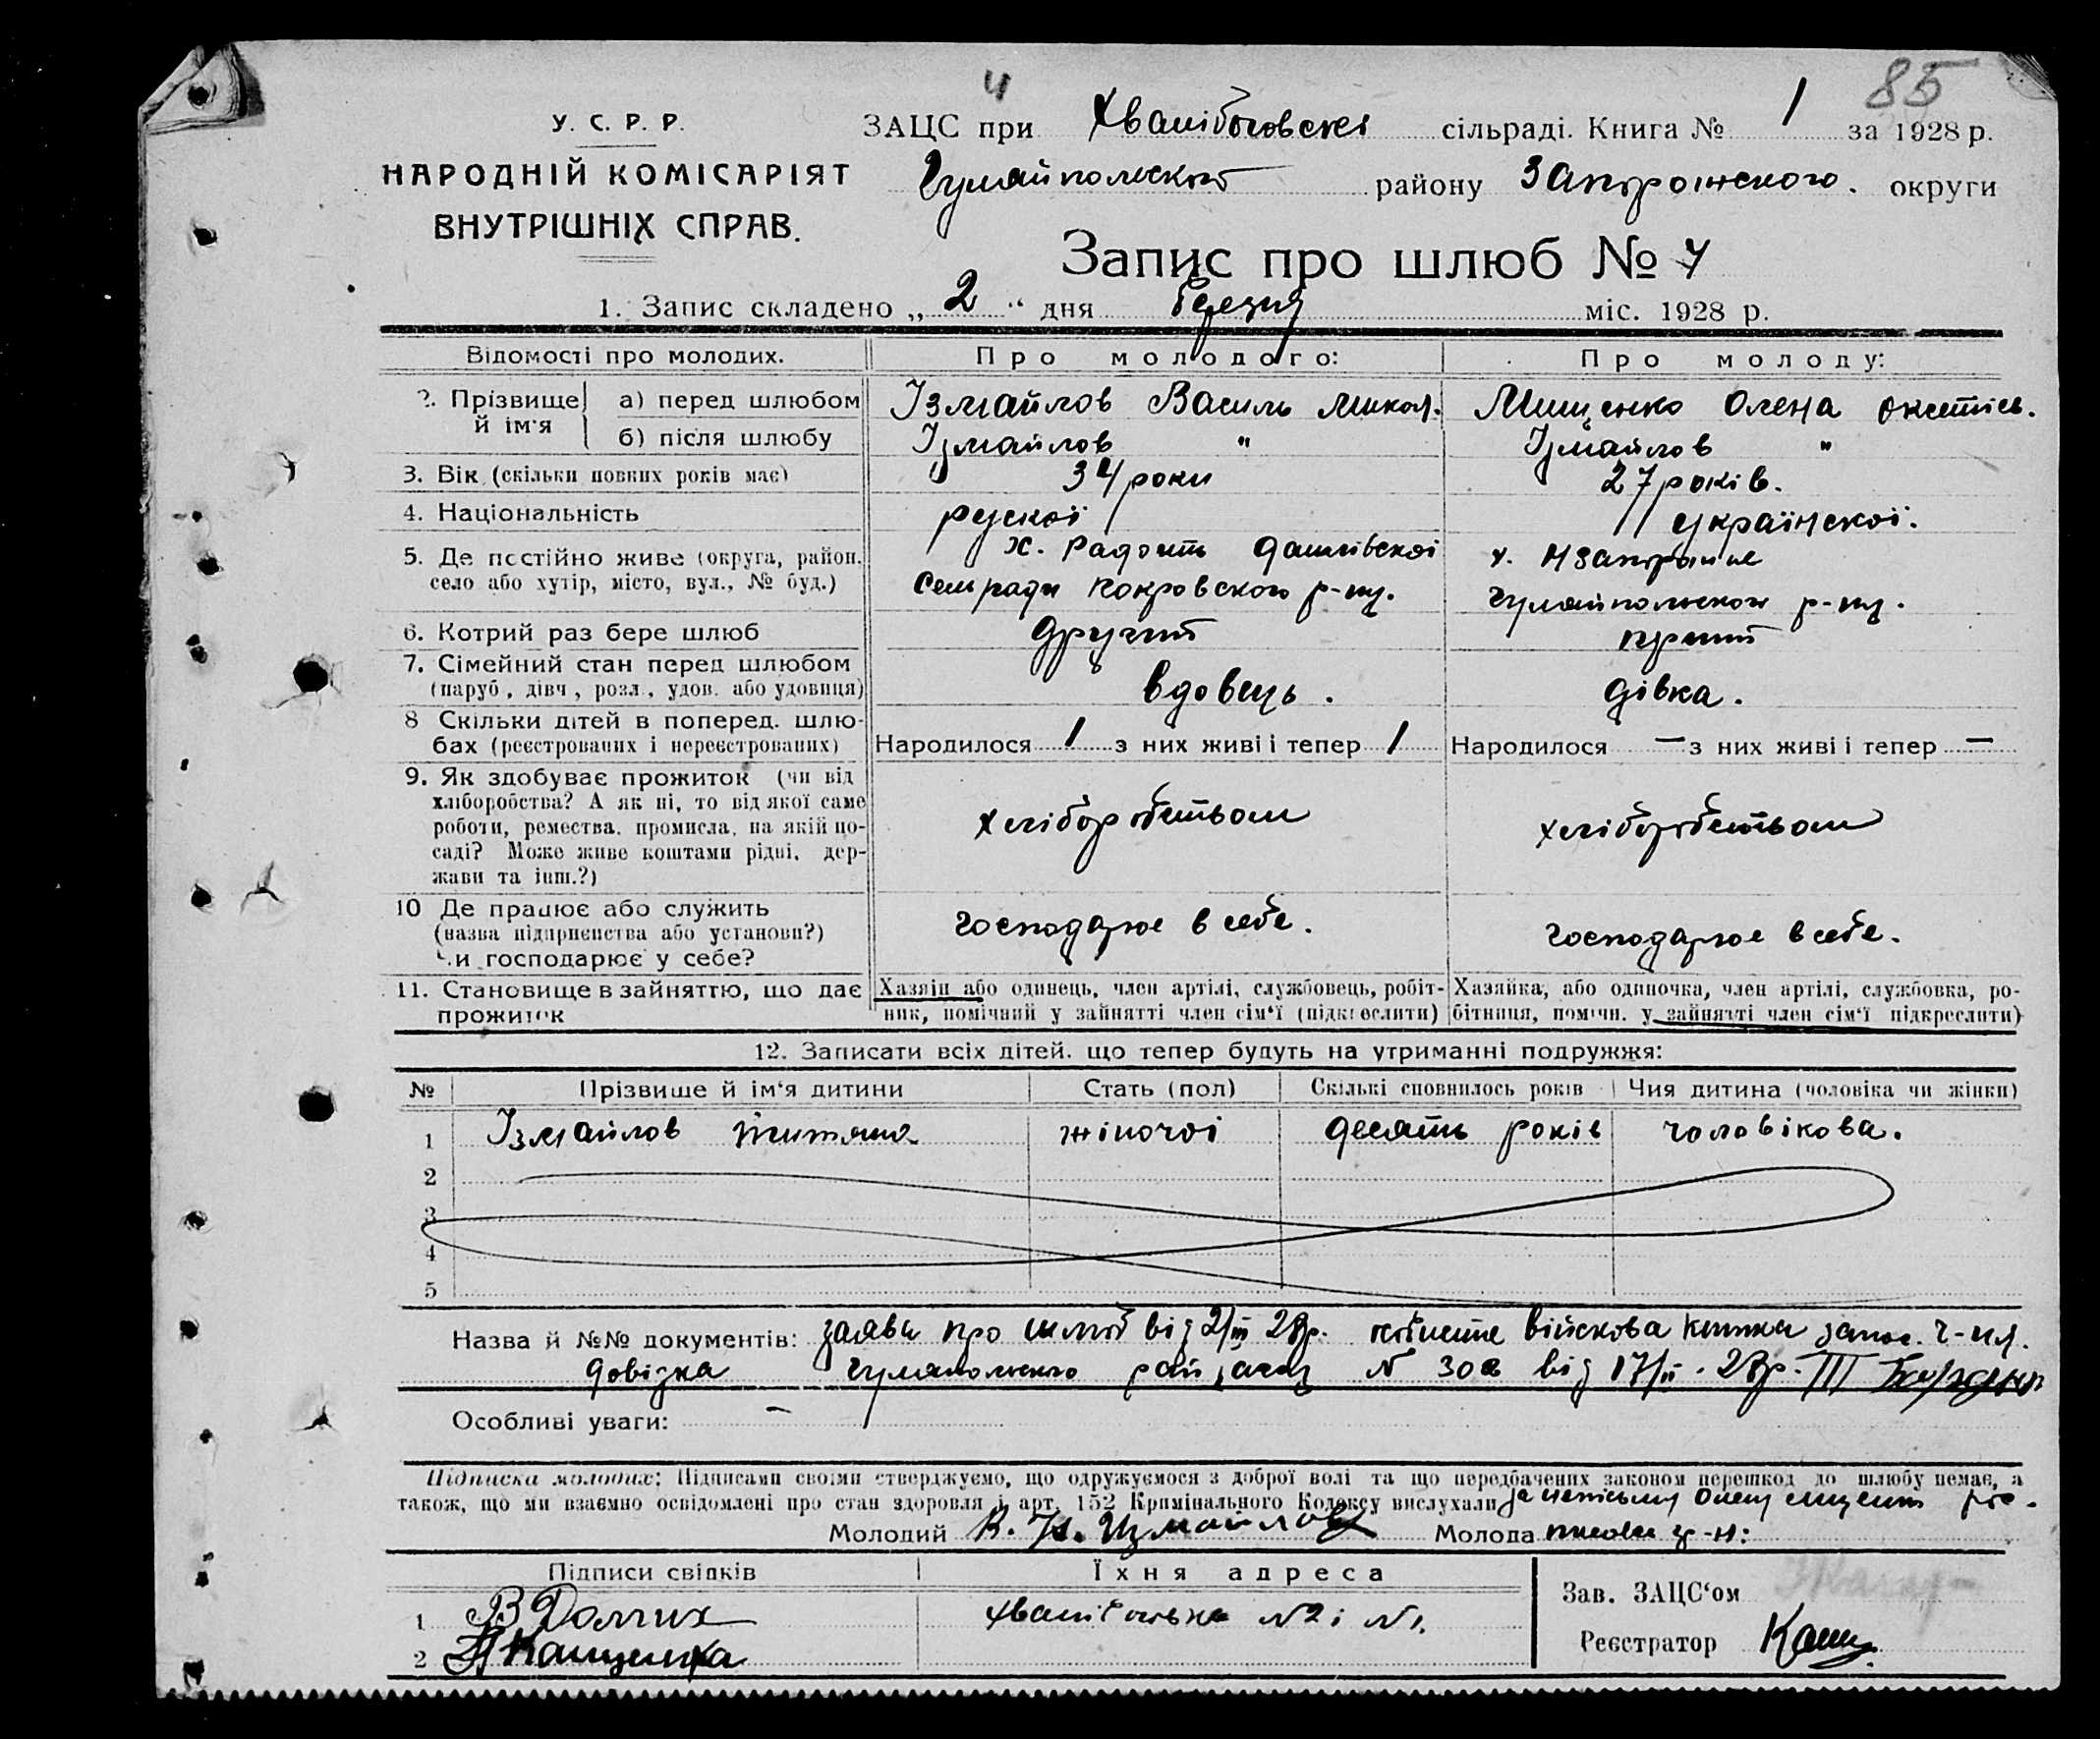 85
4
У. С. Р. Р.
НАРОДНІЙ КОМІСАРІЯТ
ВНУТРІШНІХ СПРАВ.
ЗАЦС при сільраді. Книга № 1 за 1928 р.
району Запорожского. округи
Запис про шлюб № 4
1. Запис складено „ 2 “ дня березня міс. 1928 р.
Відомості про молодих. Про молодого: Про молоду:
2. Прізвище й ім'я а) перед шлюбом Ізмайлов Василь Микол. Мищенко Олена
б) після шлюбу Ізмайлов " Ізмайлов "
3. Вік (скільки повних років має) 34 роки 27 років.
4. Національність руской українскої.
5. Де постійно живе (округа, район, х. Радость х.
село або хутір, місто, вул., № буд.) Сельради Покровского р-ну. Гуляйпольского р-ну.
6. Котрий раз бере шлюб другий
7. Сімейний стан перед шлюбом
(паруб., дівч., розл., удов. або удовиця) вдовець. дівка.
8 Скільки дітей в поперед. шлю-
бах (реєстрованих і нереєстрованих) Народилося 1 з них живі і тепер 1 Народилося — з них живі і тепер —
9. Як здобуває прожиток (чи від
хліборобства? А як ні, то від якої саме
роботи, ремества, промисла, на якій по- хліборобством хліборобством
саді? Може живе коштами рідні, дер-
жави та інш.?)
10 Де працює або служить
(назва підприємства або установи?) господарює в себе. господарює в себе.
Чи господарює у себе?
11. Становище в зайняттю, що дає Хазяїн або одинець, член артілі, службовець, робіт- Хазяйка, або одиночка, член артілі, службовка, ро-
прожиток ник, помічний у зайнятті член сім'ї (підкреслити) бітниця, помічн. у зайнятті член сім'ї підкреслити)
12. Записати всіх дітей, що тепер будуть на утриманні подружжя:
№ Прізвище й ім'я дитини Стать (пол) Скількі сповнилось років Чия дитина (чоловіка чи жінки)
1 Ізмайлов Титяна жіночої десять років чоловікова.
2
3
4
5
Назва й №№ документів: заява про шлюб від 2/III 28р. військова книжка
довідка № 302 від 17/II. 28р.
Особливі уваги: —
Підписка молодих: Підписами своїми стверджуємо, що одружуємося з доброї волі та що передбачених законом перешкод до шлюбу немає, а
також, що ми взаємно освідомлені про стан здоровля і арт. 152 Кримінального Кодексу вислухали
Молодий В. Н. Измайлов Молода
Підписи свідків Їхня адреса
Зав. ЗАЦС'ом
1 В Долгих №2 і №1.
Реєстратор
2